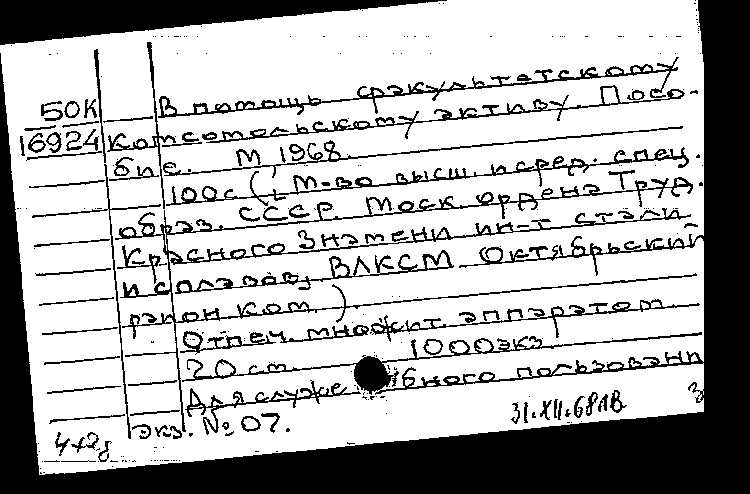 50К В помощь факультетскому
16924 комсомольскому активу. Посо-
бие. М, 1968.
100с (М-во высш. и сред. спец.
образ. СССР. Моск. ордена Труд.
Красного Знамени ин-т стали
и сплавов, ВЛКСМ. Октябрьский
район ком.).
Отпеч. множит. аппаратом.
20 см. 1000экз.
Для служебного пользовани
экз. № 07. 31.XII.68